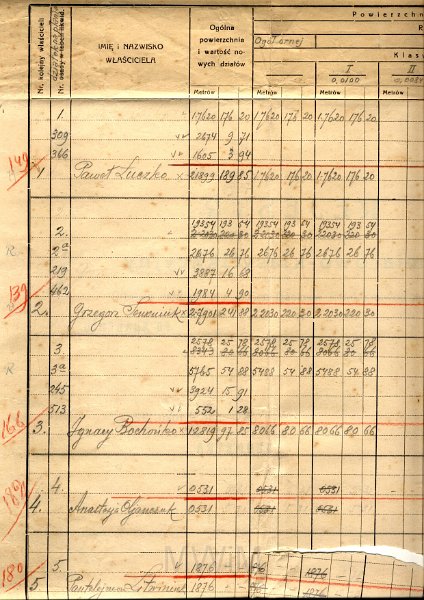 Nr. kolejny właścicieli
IMIĘ i NAZWISKO WŁAŚCICIELA
Ogólna powierzchnia i wartość nowych działów
Powierzchn
R
Ogół ornej
Klas
I II
0,0100
Metrów Metrów Metrów Metrów
1. 17620 176 20 17620 176 20 17620 176 20
309 2674 9 71
366 1605 3 94
149
1 Paweł Luczko 21899 189 85 17620 176 20 17620 176 20
19354 193 54 19354 193 54 19354 193 54
2. 22030 220 30 22030 220 30 22030 220 30
2a 2676 26 76 2676 26 76 2676 26 76
219 3887 16 68
139
462 1984 4 90
2. Grzegorz 241 88 22030 220 30 22030 220 30
2578 25 78 2578 25 78 2578 25 78
3. 8343 80 66 8066 80 66 8066 80 66
3a 5765 54 88 5488 54 88 5488 54 88
245 3924 15 91
513 552 1 28
166
3. Ignacy 12819 97 85 8066 80 66 8066 80 66
4. 0531 0531 0531
4. Anastazja 0531 0531 0531
180
5. 1876 1876
5 1876 1876